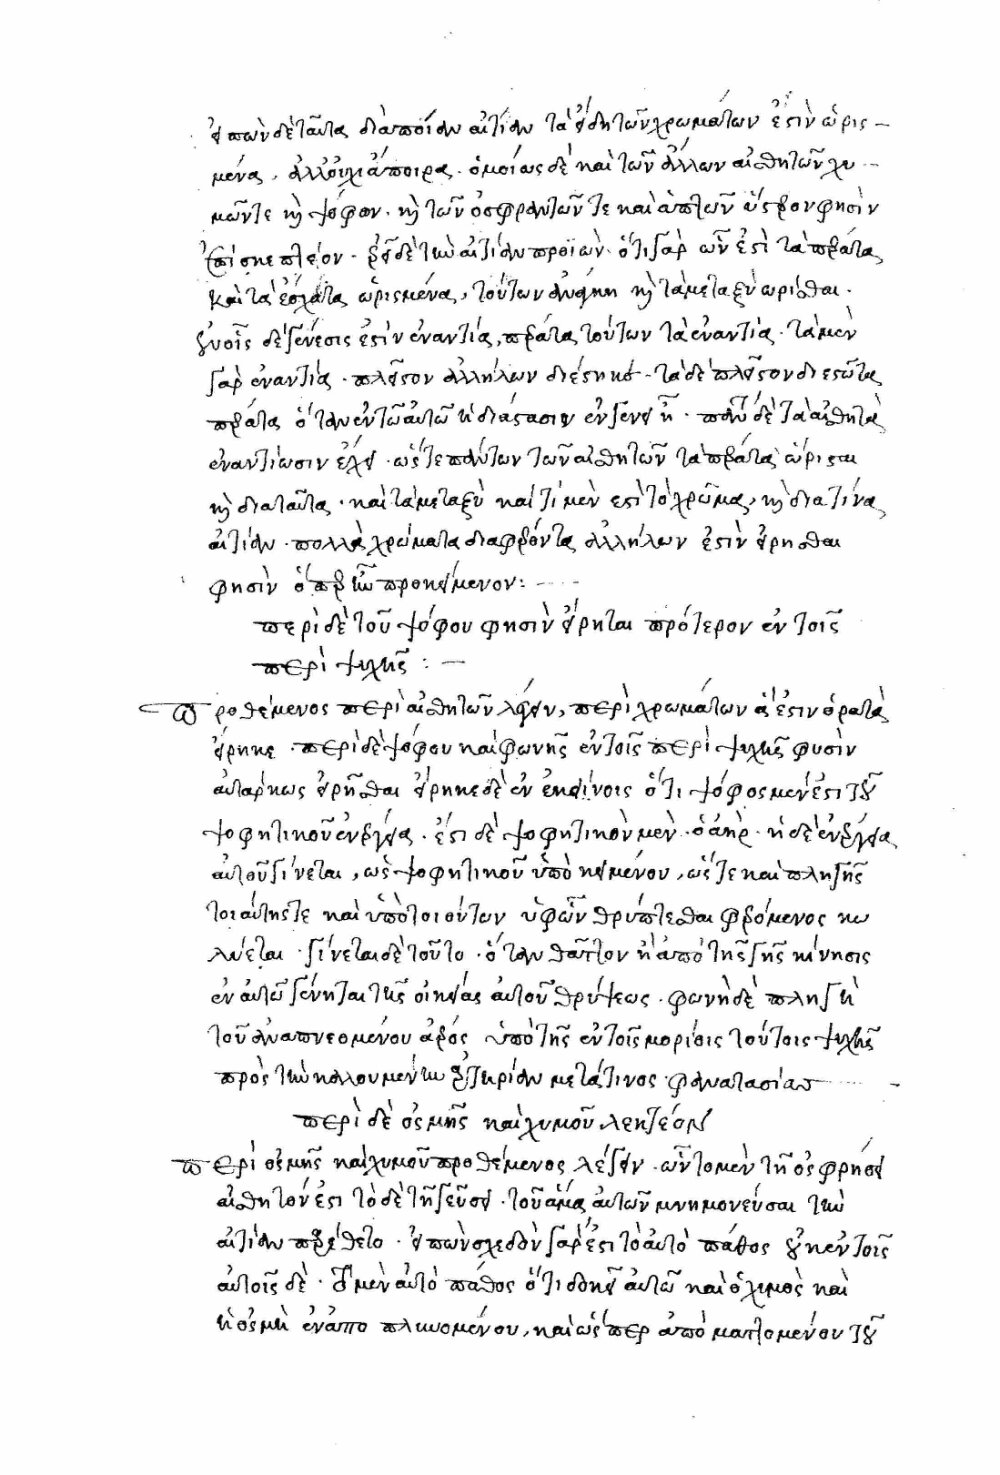 εἰπὼν δὲ ταῦτα διὰ ποίαν αἰτίαν τὰ εἴδη τῶν χρωμάτων ἐστὶν ὡρισ
μένα, ἀλλ' οὐχὶ ἄπειρα. ὁμοίως δὲ καὶ τῶν ἄλλων αἰσθητῶν χυ
μῶν τε καὶ ψόφων. καὶ τῶν ὀσφραντῶν τε καὶ ἁπτῶν ὕστερον φησὶν
ἐπίσκεπτέον. ἐρεῖ δὲ τὴν αἰτίαν προϊών. ὅτι γὰρ ὧν ἐστὶ τὰ πέρατα
καὶ τὰ ἔσχατα ὡρισμένα, τούτων ἀνάγκη καὶ τὰ μεταξὺ ὡρίσθαι.
ἐν οἷς δὲ γένεσις ἐστὶν ἐναντία, πέρατα τούτων τὰ ἐναντία. τὰ μὲν
γὰρ ἐναντία. πλεῖστον ἀλλήλων διέστηκε. τὰ δὲ πλεῖστον διεστῶτα
πέρατα ὅταν ἐν τῶ αὐτῶ ἡ διάστασις ἐν γένει ᾖ. πάντα δὲ τὰ αἰσθητὰ
ἐναντίωσιν ἔχει. ὥστε πάντων τῶν αἰσθητῶν τὰ πέρατα ὥρισται
καὶ διὰ ταῦτα. καὶ τὰ μεταξὺ καὶ τί μὲν ἐστὶ τὸ χρῶμα, καὶ διὰ τίνα
αἰτίαν. πολλὰ χρώματα διαφέροντα ἀλλήλων ἐστὶν εἰρῆσθαι
φησὶν ὅπερ ἦν προκείμενον:
περὶ δὲ τοῦ ψόφου φησὶν εἴρηται πρότερον ἐν τοῖς
περὶ ψυχῆς:
προθέμενος περὶ αἰσθητῶν λέγειν, περὶ χρωμάτων ἅ ἐστιν ὁρατὰ
εἴρηκε. περὶ δὲ ψόφου καὶ φωνῆς ἐν τοῖς περὶ ψυχῆς φησὶν
αὐτάρκως εἰρῆσθαι εἴρηκε δὲ ἐν ἐκείνοις ὅτι ψόφος μὲν ἐστι τοῦ
ψοφητικοῦ ἐνέργεια. ἔστι δὲ ψοφητικὸν μὲν. ὁ ἀήρ. ἡ δὲ ἐνέργεια
αὐτοῦ γίνεται, ὡς ψοφητικοῦ ὑποκειμένου, ὥστε καὶ πληγῆς
τοιαύτης τε καὶ ὑπὸ τοιούτων ὑφ' ὧν θρύπτεσθαι φερόμενος κω
λύεται. γίνεται δὲ τοῦτο. ὅταν θᾶττον ἡ ἀπὸ τῆς γῆς κίνησις
ἐν αὐτῶ γένηται τῆς οἰκείας αὐτοῦ θρύψεως. φωνὴ δὲ πληγὴ
τοῦ ἀναπνεομένου ἀέρος ὑπὸ τῆς ἐν τοῖς μορίοις τούτοις ψυχῆς
πρὸς τὴν καλουμένην ἀρτηρίαν μετά τινος φαντασίας
περὶ δὲ ὀσμῆς καὶ χυμοῦ λεκτέον
περὶ ὀσμῆς καὶ χυμοῦ προθέμενος λέγειν. ὧν τὸ μὲν τῇ ὀσφρήσει
αἰσθητόν ἐστι τὸ δὲ τῇ γεύσει. τοῦ ἅμα αὐτῶν μνημονεῦσαι τὴν
αἰτίαν προσέθετο. εἰπὼν σχεδὸν γάρ ἐστι τὸ αὐτὸ πάθος οὐκ ἐν τοῖς
αὐτοῖς δέ. τὸ μὲν αὐτὸ πάθος ὅτι δοκεῖ αὐτῶ καὶ ὁ χυμὸς καὶ
ἡ ὀσμὴ ἐναποπλυνομένου, καὶ ὥσπερ ἀπὸ ματτομένου τοῦ